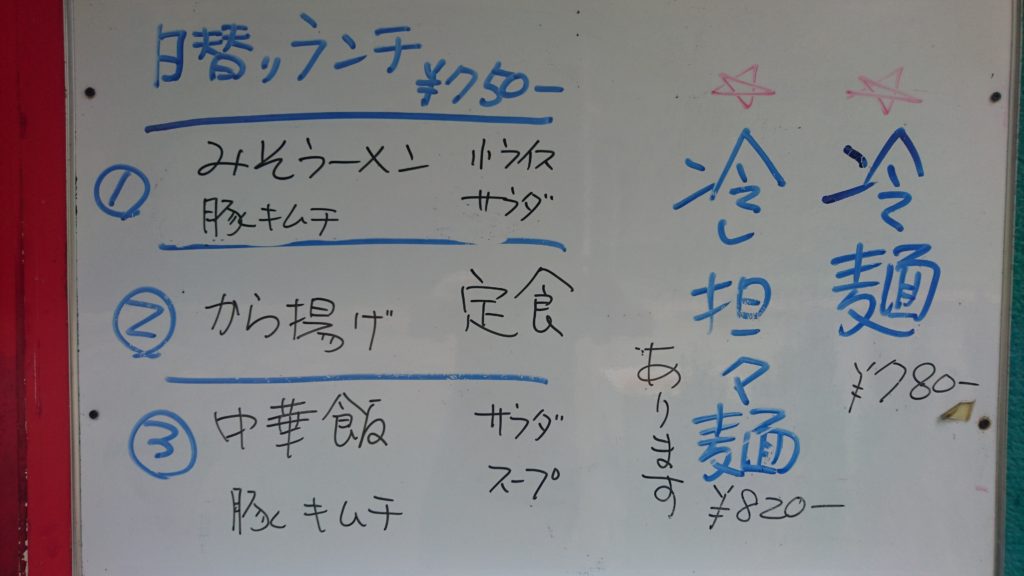 日替りランチ
¥750-
①
みそラーメン 小ライス
豚キムチ サラダ
②
から揚げ 定食
③
中華飯 サラダ
スープ
豚キムチ
☆冷麺
¥780-
☆冷し担々麺
¥820-
あります